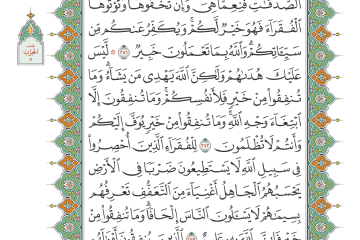 ٱلصَّدَقَٰتِ فَنِعِمَّا هِيَ ۖ وَإِن تُخْفُوهَا وَتُؤْتُوهَا
ٱلْفُقَرَآءَ فَهُوَ خَيْرٌ لَّكُمْ ۚ وَيُكَفِّرُ عَنكُم مِّن
سَيِّـَٔاتِكُمْ ۗ وَٱللَّهُ بِمَا تَعْمَلُونَ خَبِيرٌ ٢٧١ لَّيْسَ
عَلَيْكَ هُدَىٰهُمْ وَلَٰكِنَّ ٱللَّهَ يَهْدِى مَن يَشَآءُ ۗ وَمَا
تُنفِقُوا۟ مِنْ خَيْرٍ فَلِأَنفُسِكُمْ ۚ وَمَا تُنفِقُونَ إِلَّا
ٱبْتِغَآءَ وَجْهِ ٱللَّهِ ۚ وَمَا تُنفِقُوا۟ مِنْ خَيْرٍ يُوَفَّ إِلَيْكُمْ
وَأَنتُمْ لَا تُظْلَمُونَ ٢٧٢ لِلْفُقَرَآءِ ٱلَّذِينَ أُحْصِرُوا۟
فِى سَبِيلِ ٱللَّهِ لَا يَسْتَطِيعُونَ ضَرْبًا فِى ٱلْأَرْضِ
يَحْسَبُهُمُ ٱلْجَاهِلُ أَغْنِيَآءَ مِنَ ٱلتَّعَفُّفِ تَعْرِفُهُم
بِسِيمَٰهُمْ لَا يَسْـَٔلُونَ ٱلنَّاسَ إِلْحَافًا ۗ وَمَا تُنفِقُوا۟ مِنْ
خَيْرٍ فَإِنَّ ٱللَّهَ بِهِۦ عَلِيمٌ ٢٧٣ ٱلَّذِينَ يُنفِقُونَ أَمْوَٰلَهُم